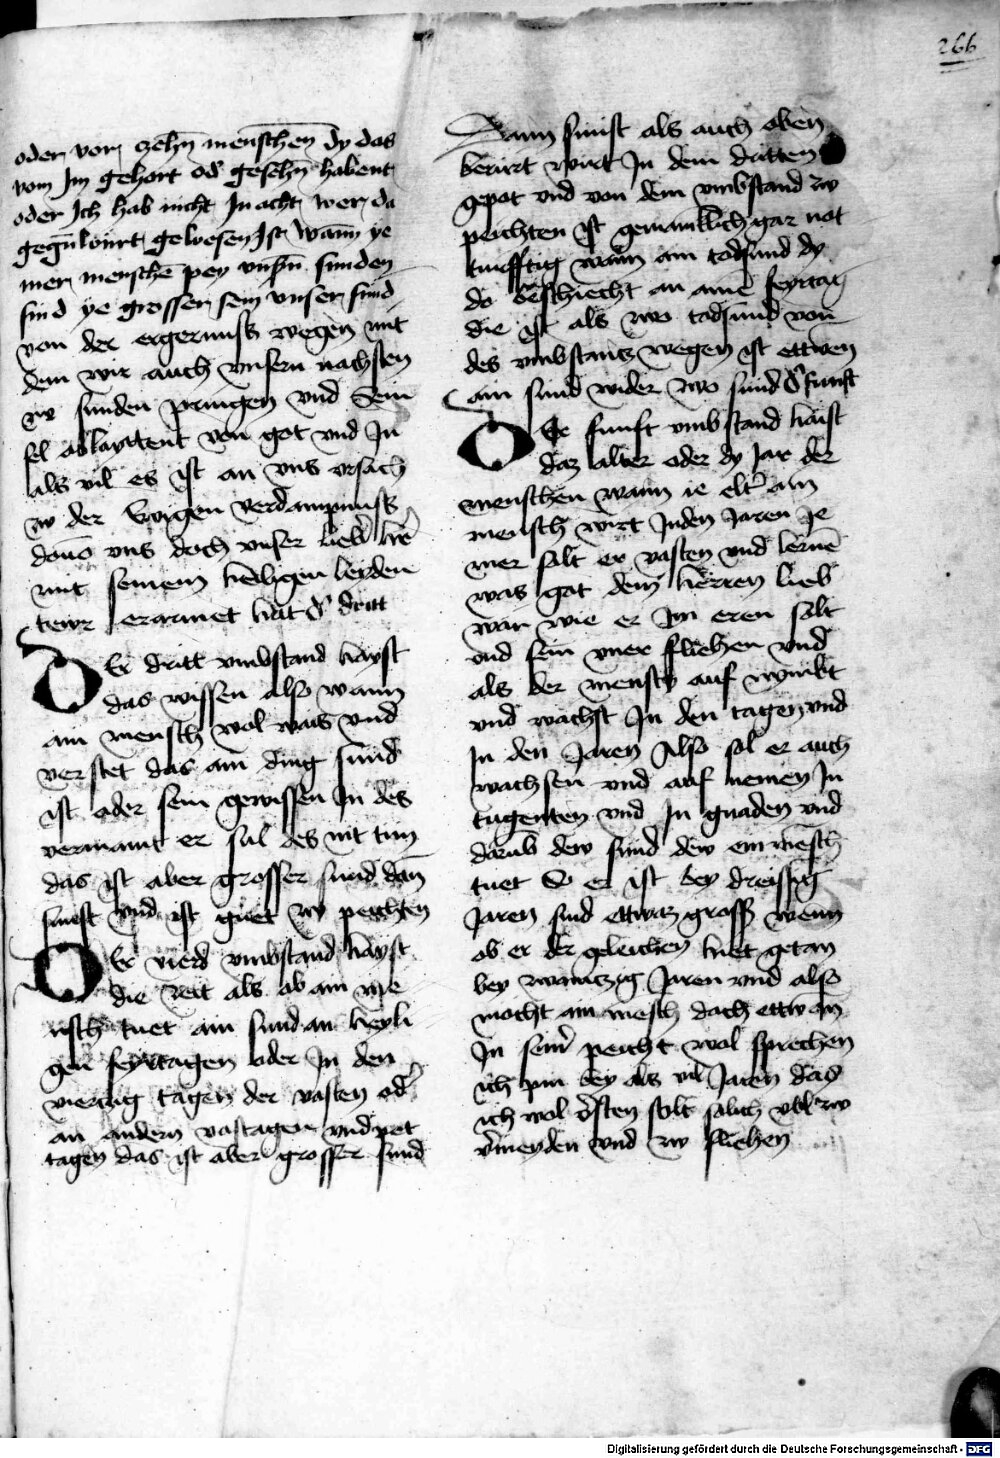 266
oder vor zehn menschen dy das
vom Jm gehort od gesehn habent
oder Ich hab nicht Jn acht wer da
gegnburt gewesen Ist wann ye
mer menschē pey vnsn sunden
sind ye grosser sein vnser sund
von der ergernuss wegen mit
dem wir auch vnsern nachsten
zw sunden pringen vnd Sein
sel von got vnd Jn
als vil es ist an vns vrsach
zw der Ewigen verdampnuss
dauō vns doch vnser lieber her
mit seinem heiligen leyden
tewr erarnnet hat d dritt
DEr dritt vmbstand hayst
das wissen also wann
ain mensch wol wais vnd
verstet das ain ding sund
ist oder sein gewissen In des
vermant er sul des nit tun
das ist aber grosser sund dan
sunst vnd ist guet zw peichten
DEr vierd vmbstand hayst
die zeit als ob ain me
nsch tuet ain sund an heyli
gen feyrtagen oder In den
vierczig tagen der vasten od
an andern vastagen vnd pet
tagen das ist aber grosser sund
Dann sunst als auch oben
berürt wirt In dem dritten
gepot vnd von dem vmbstand zw
peichten ist gemainklich gar not
turfftig wann ain todsund dy
do beschiecht an aine feyrtag
die ist als zwo todsund von
des vmbstantz wegen ist ettwen
ain sund wider zwo sund d funft
DEr funft vmbstand haist
daz alter oder dy Jar der
menschen wann ie elter ain
mensch wirt Jnden Jaren Je
mer solt er vasten vnd lernē
was got dem herren lieb
war wie er Im eren solt
vnd sein vner fliehen vnd
als der mensch auf nymbt
vnd wachst In den tagen vnd
In den Jaren Also sol er auch
wachsen vnd auf nemen In
tugenten vnd In gnaden vnd
darub dew sund dew ein mēsch
tuet So er ist bey dreissig
Jaren sind ettwaz gross wenn
ob er der geleichen hiet getan
bey zwaintzig Jaren vnd also
mocht ain mēsch doch ettwan
In seiner peicht wol sprechen
ich pin bey als vil Jaren das
ich wol solt solich vbl zw
vermeyden vnd zw fliehen
Digitalisierung gefördert durch die Deutsche Forschungsgemeinschaft - DFG